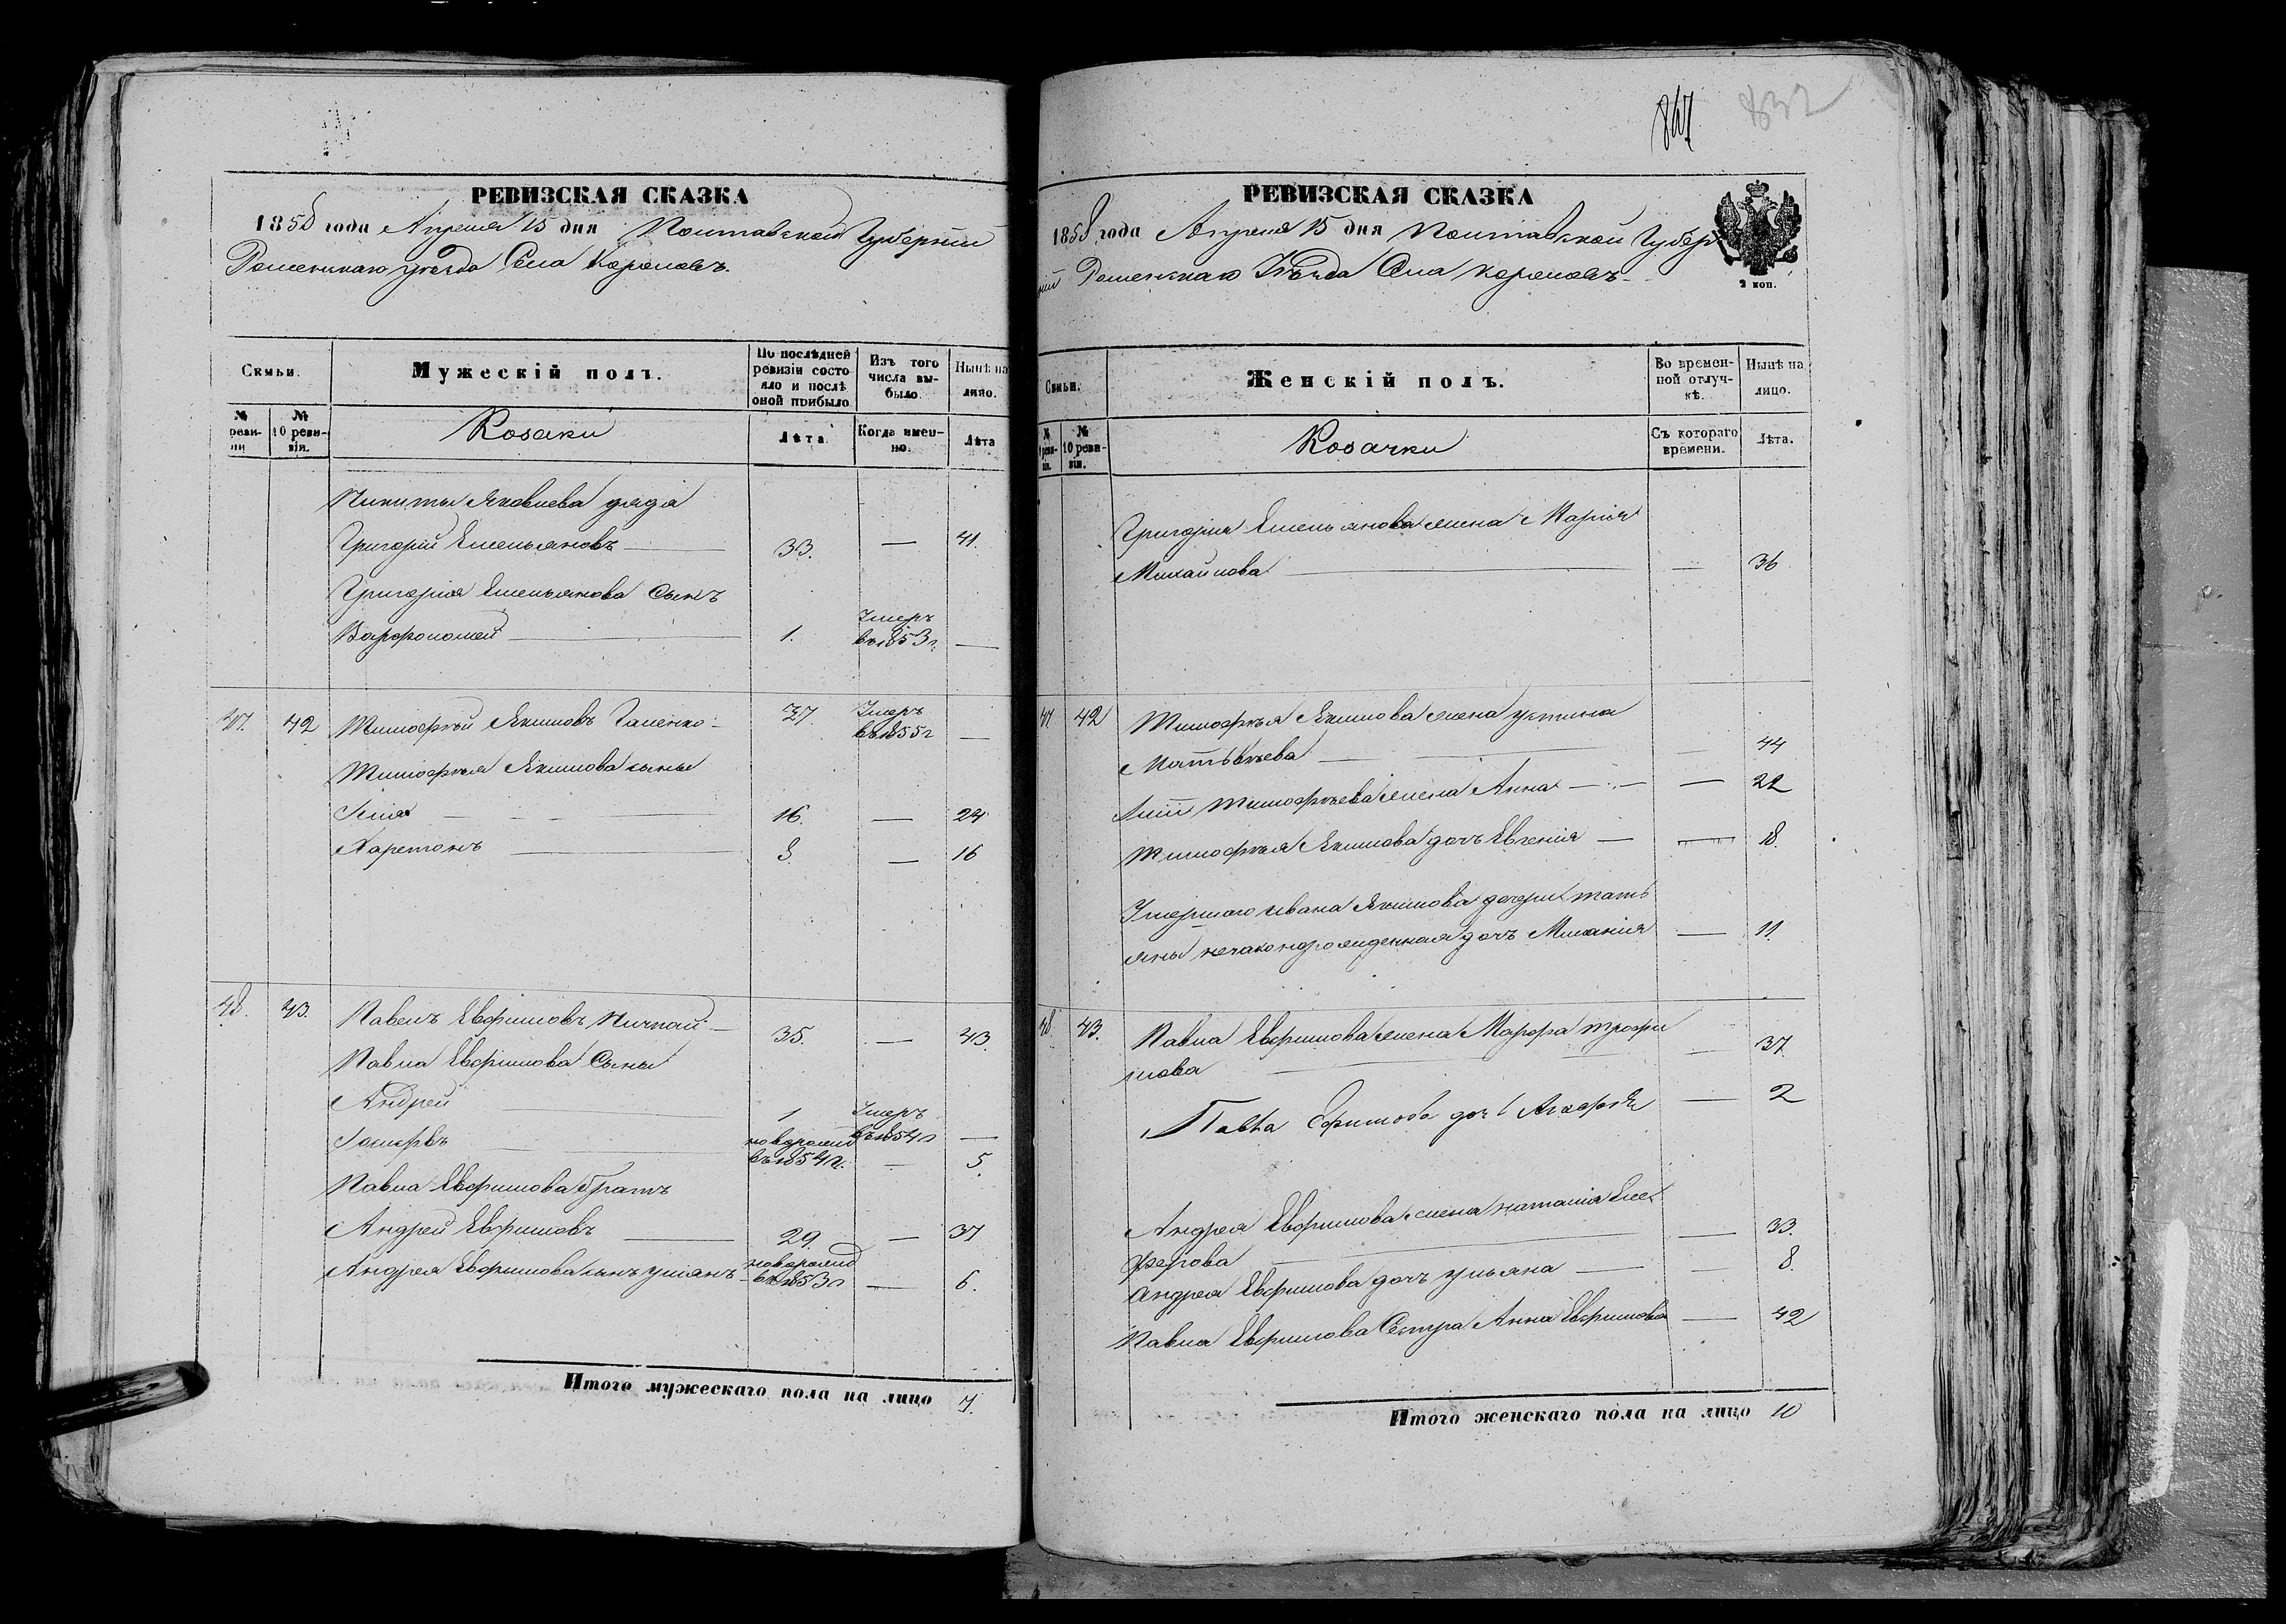 РЕВИЗСКАЯ СКАЗКА
1858 года Апреля 15 дня Полтавской Губернии
Роменскаго уезда Села Коровов
Семьи.
Мужескій полъ.
По послѣдней ревизіи состояло и послѣ оной прибыло
Изъ того числа выбыло.
Нынѣ на лицо.
№ ревизіи
№ 10 ревизіи.
Козаки
Лѣта.
Когда именно.
Лѣта
Никиты Яковлева дядя
Григорій Емельяновъ 33. — 41.
Григорія Емельянова Сынъ
Варфоломей 1. Умеръ въ 1853 г. —
47. 42 Тимофѣй Якимовъ Галенко 37 Умеръ въ 1855 г —
Тимофѣя Якимова сыны
Илія 16 — 24
Харетонъ 8. — 16
48. 43. Павелъ Евфимовъ 35. — 43.
Павла Евфимова Сыны
Андрей 1 Умеръ въ 1854 г —
Іосифъ новорожд въ 1854 г. — 5.
Павла Евфимова братъ
Андрей Евфимовъ 29. — 37
Андрея Евфимова сынъ Уліянъ новорожд въ 1853 г — 6.
Итого мужескаго пола на лицо 7.
847
832
РЕВИЗСКАЯ СКАЗКА
1858 года Апреля 15 дня Полтавской Губер
ніи Роменскаго Уѣзда Села
2 коп.
Семьи.
Женскій полъ.
Во временной отлучкѣ.
Нынѣ на лицо.
№ 9 ревизіи.
№ 10 ревизіи.
Козачки
Съ котораго времени.
Лѣта.
Григорія Емельянова жена Марія
Михайлова — 36
47 42 Тимофѣя Якимова жена Устина
Матвѣева — 44
Иліи Тимофѣева жена Анна — 22
Тимофѣя Якимова дочь Евгенія — 18.
Умершаго Ивана Якимова дочери Тать
яны незаконорожденная дочь Миланія — 11.
48. 43. Павла Евфимова жена Марфа Трофи
мова — 37.
Павла Ефимова доч — 2
Андрея Евфимова жена Наталія Еле
ферова — 33.
Андрея Евфимова дочь Ульяна — 8.
Павла Евфимова Сестра Анна Евфимова — 42
Итого женскаго пола на лицо 10